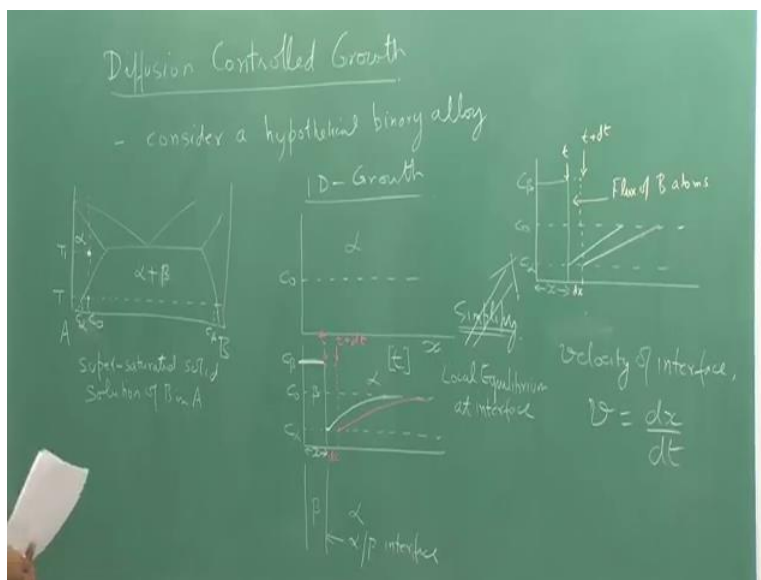 Diffusion Controlled Growth
- consider a hypothetical binary alloy
α
T₁
α+β
T
A
Cα
C₀
Cβ
B
Super-saturated solid
Solution of B in A
1D-Growth
α
C₀
x
t
t+dt
Cβ
[t]
C₀
β
α
Cα
x
dx
β
α
α/β interface
Simplify
Local Equilibrium
at interface
t
t+dt
Cβ
Flux of B atoms
C₀
Cα
x
dx
Velocity of interface,
v = dx
dt